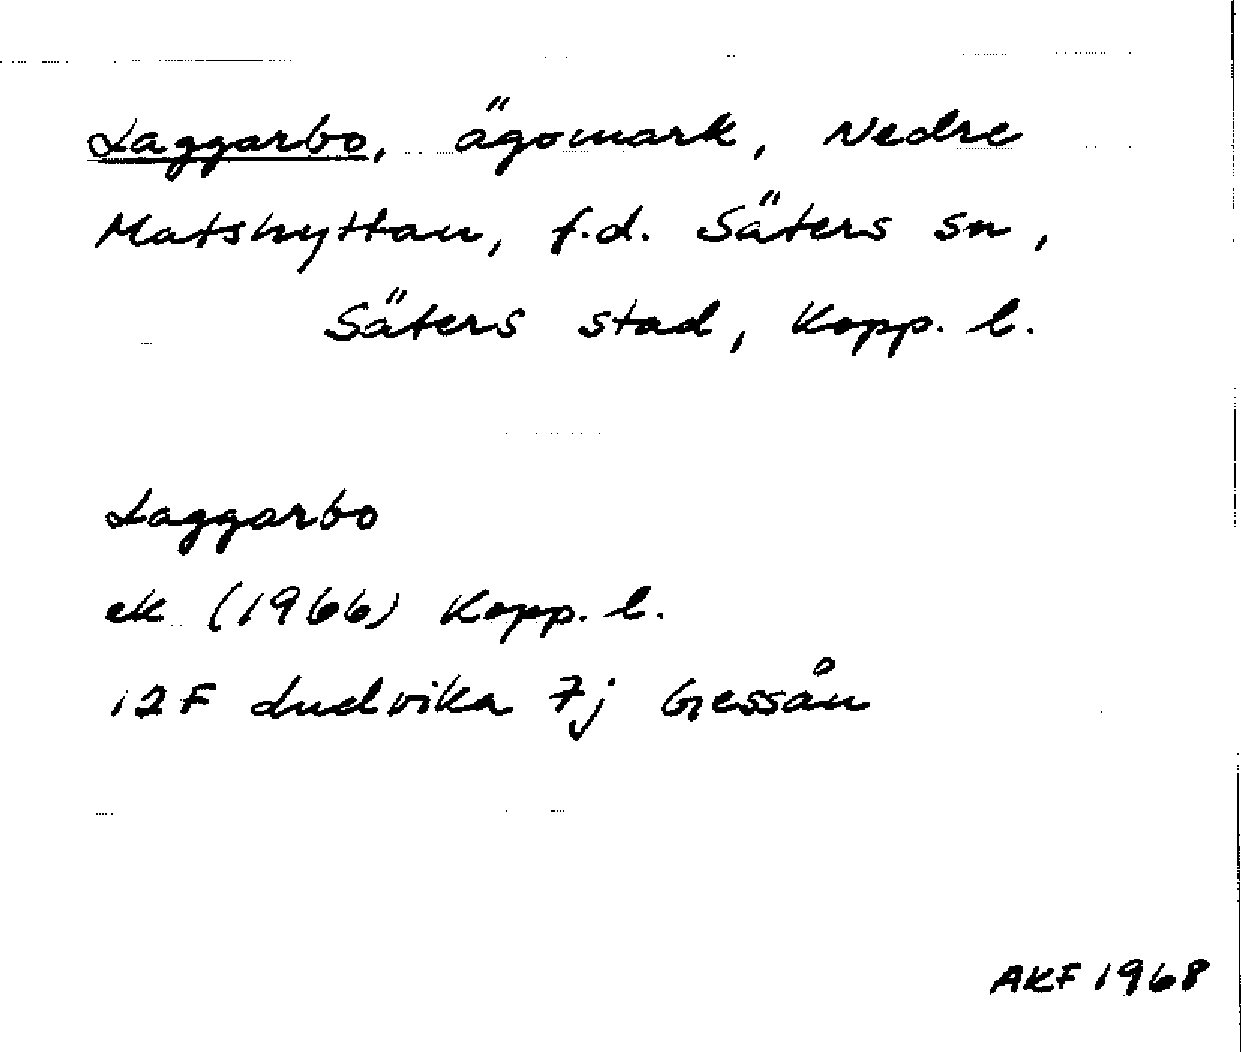 Laggarbo, ägomark, Nedre
Matshyttan, f.d. Säters sn,
Säters stad, Kopp. l.
Laggarbo
ek (1966) Kopp. l.
12F Ludvika 7j Gessån
AKF 1968